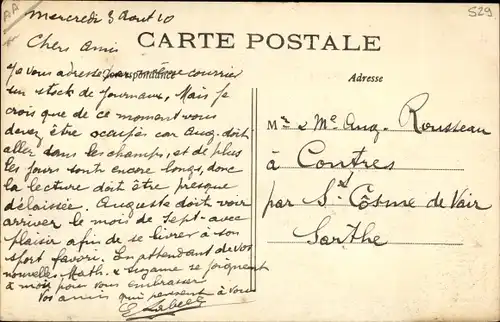 AA
529
Mercredi 3 Aout 10
CARTE POSTALE
Chers Amis
Correspondance
Adresse
Je vous adresse par même courrier
un stock de journaux, Mais je
crois que de ce moment vous
devez être occupés car Aug. doit
aller dans les champs, et de plus
les jours sont encore longs, donc
la lecture doit être presque
délaissée. Auguste doit voir
arriver le mois de Sept- avec
plaisir afin de se livrer à son
sport favori. En attendant de vos
nouvelles Math. & Suzanne se joignent
à moi pour vous embrasser
Vos amis qui pensent à vous
Mr & Me Aug. Rousseau
à Contres
par St Cosme de Vair
Sarthe